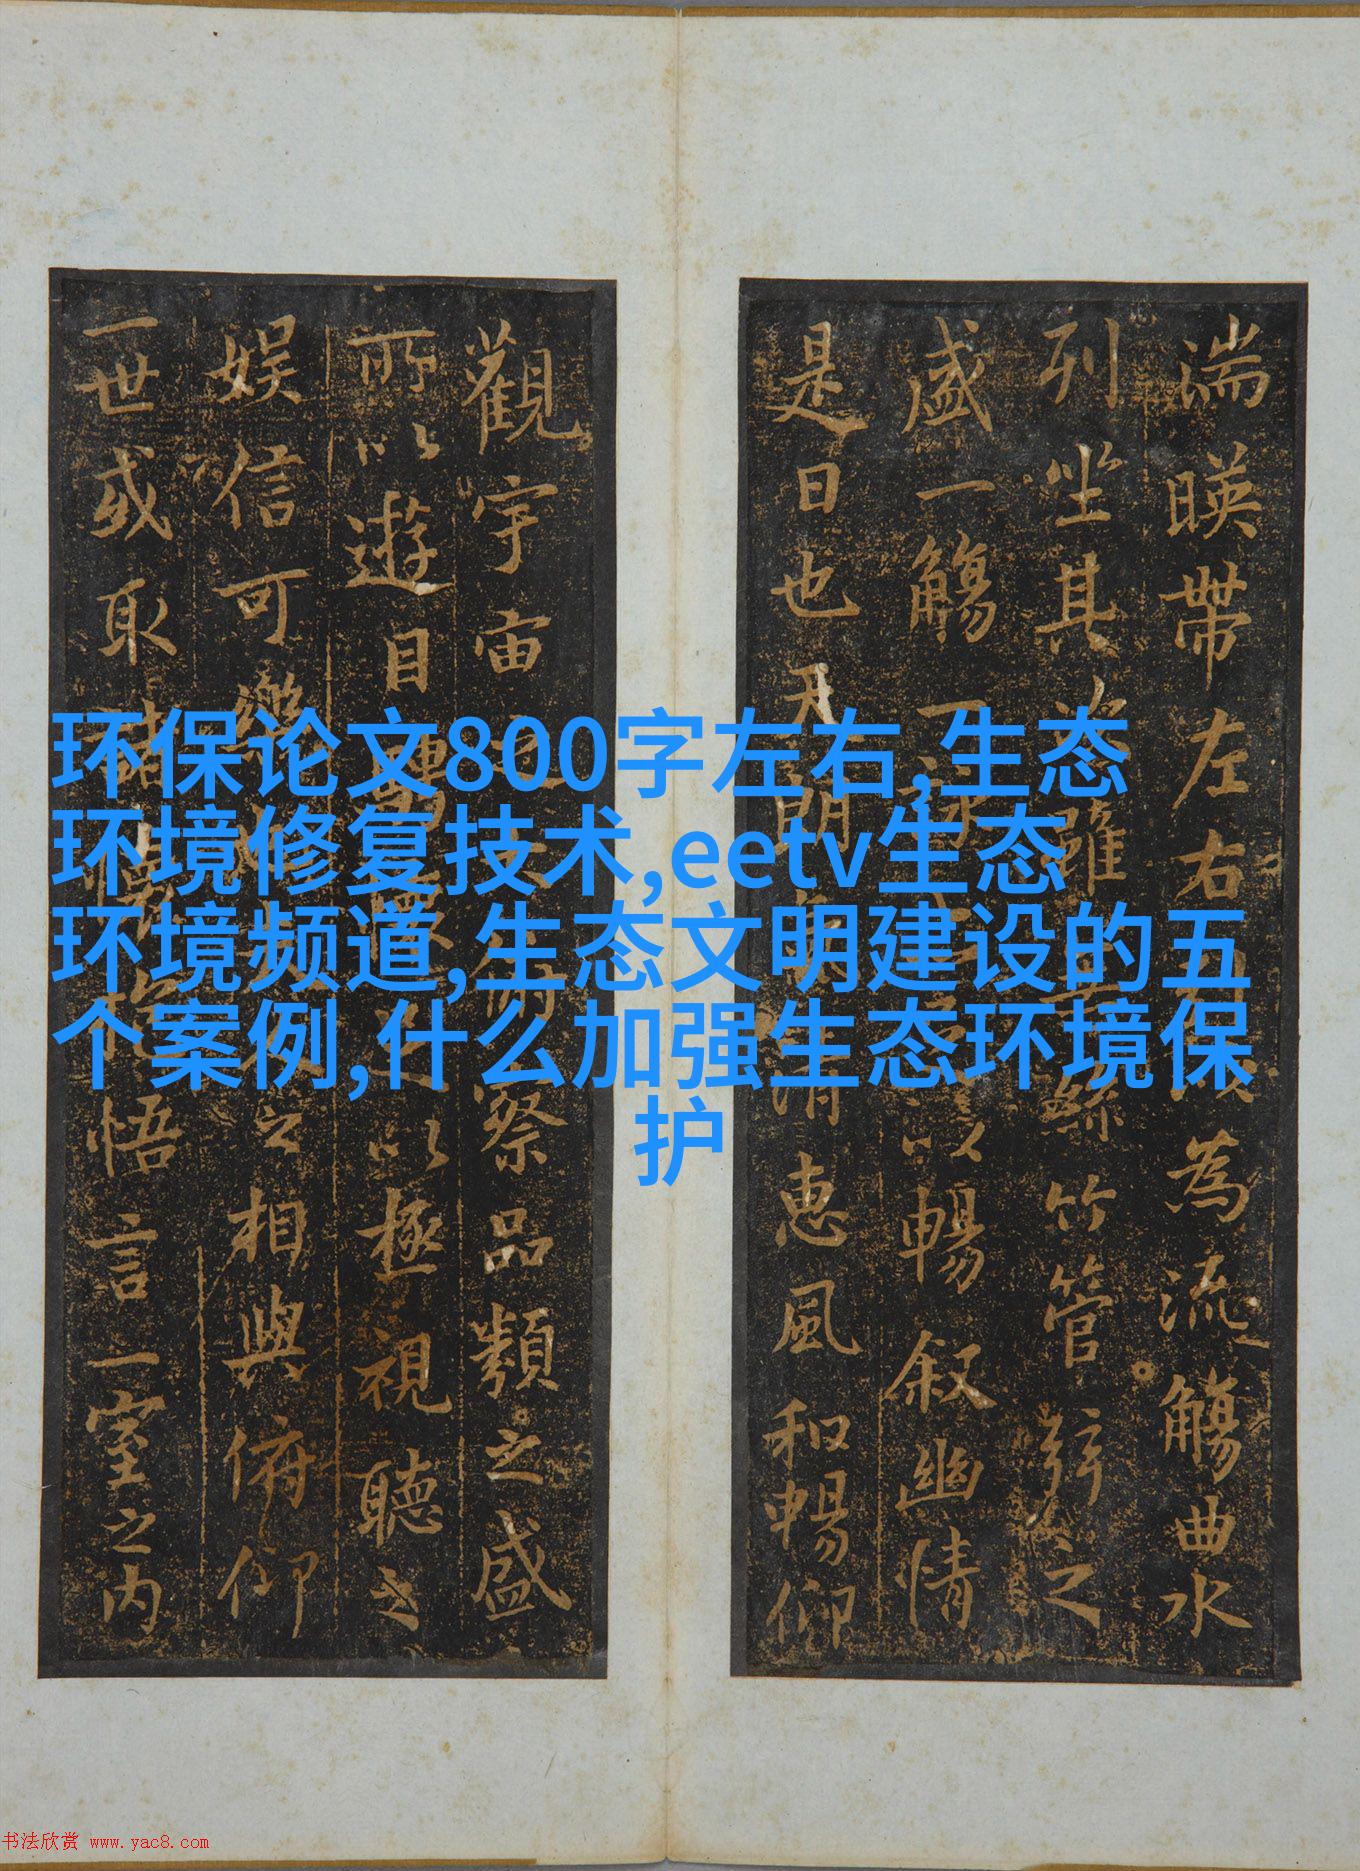 湍暎帶左右引以為流觴曲水
列坐其次雖無絲竹管弦之
盛一觴一詠亦足以暢叙幽情
是日也天朗氣清恵風和暢仰
觀宇宙之大俯察品類之盛
所以遊目騁懷足以極視聽之
娱信可樂也夫人之相與俯仰
一世或取諸懷抱悟言一室之内
环保论文800字左右,生态
环境修复技术,eetv生态
环境频道,生态文明建设的五
个案例,什么加强生态环境保
护
书法欣赏 www.yac8.com